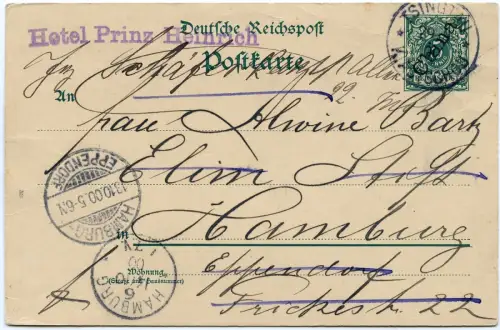 Deutsche Reichspost
Hotel Prinz Heinrich
Postkarte
TSINGTAU
KIAUTSCHOU
China
An
Frau Alwine Bartz
Elim Stift
Hamburg
in
Eppendorf
Wohnung
(Straße und Hausnummer)
Frickestr. 22
HAMBURG
EPPENDORF
13.10.00.5-6N
HAMBURG